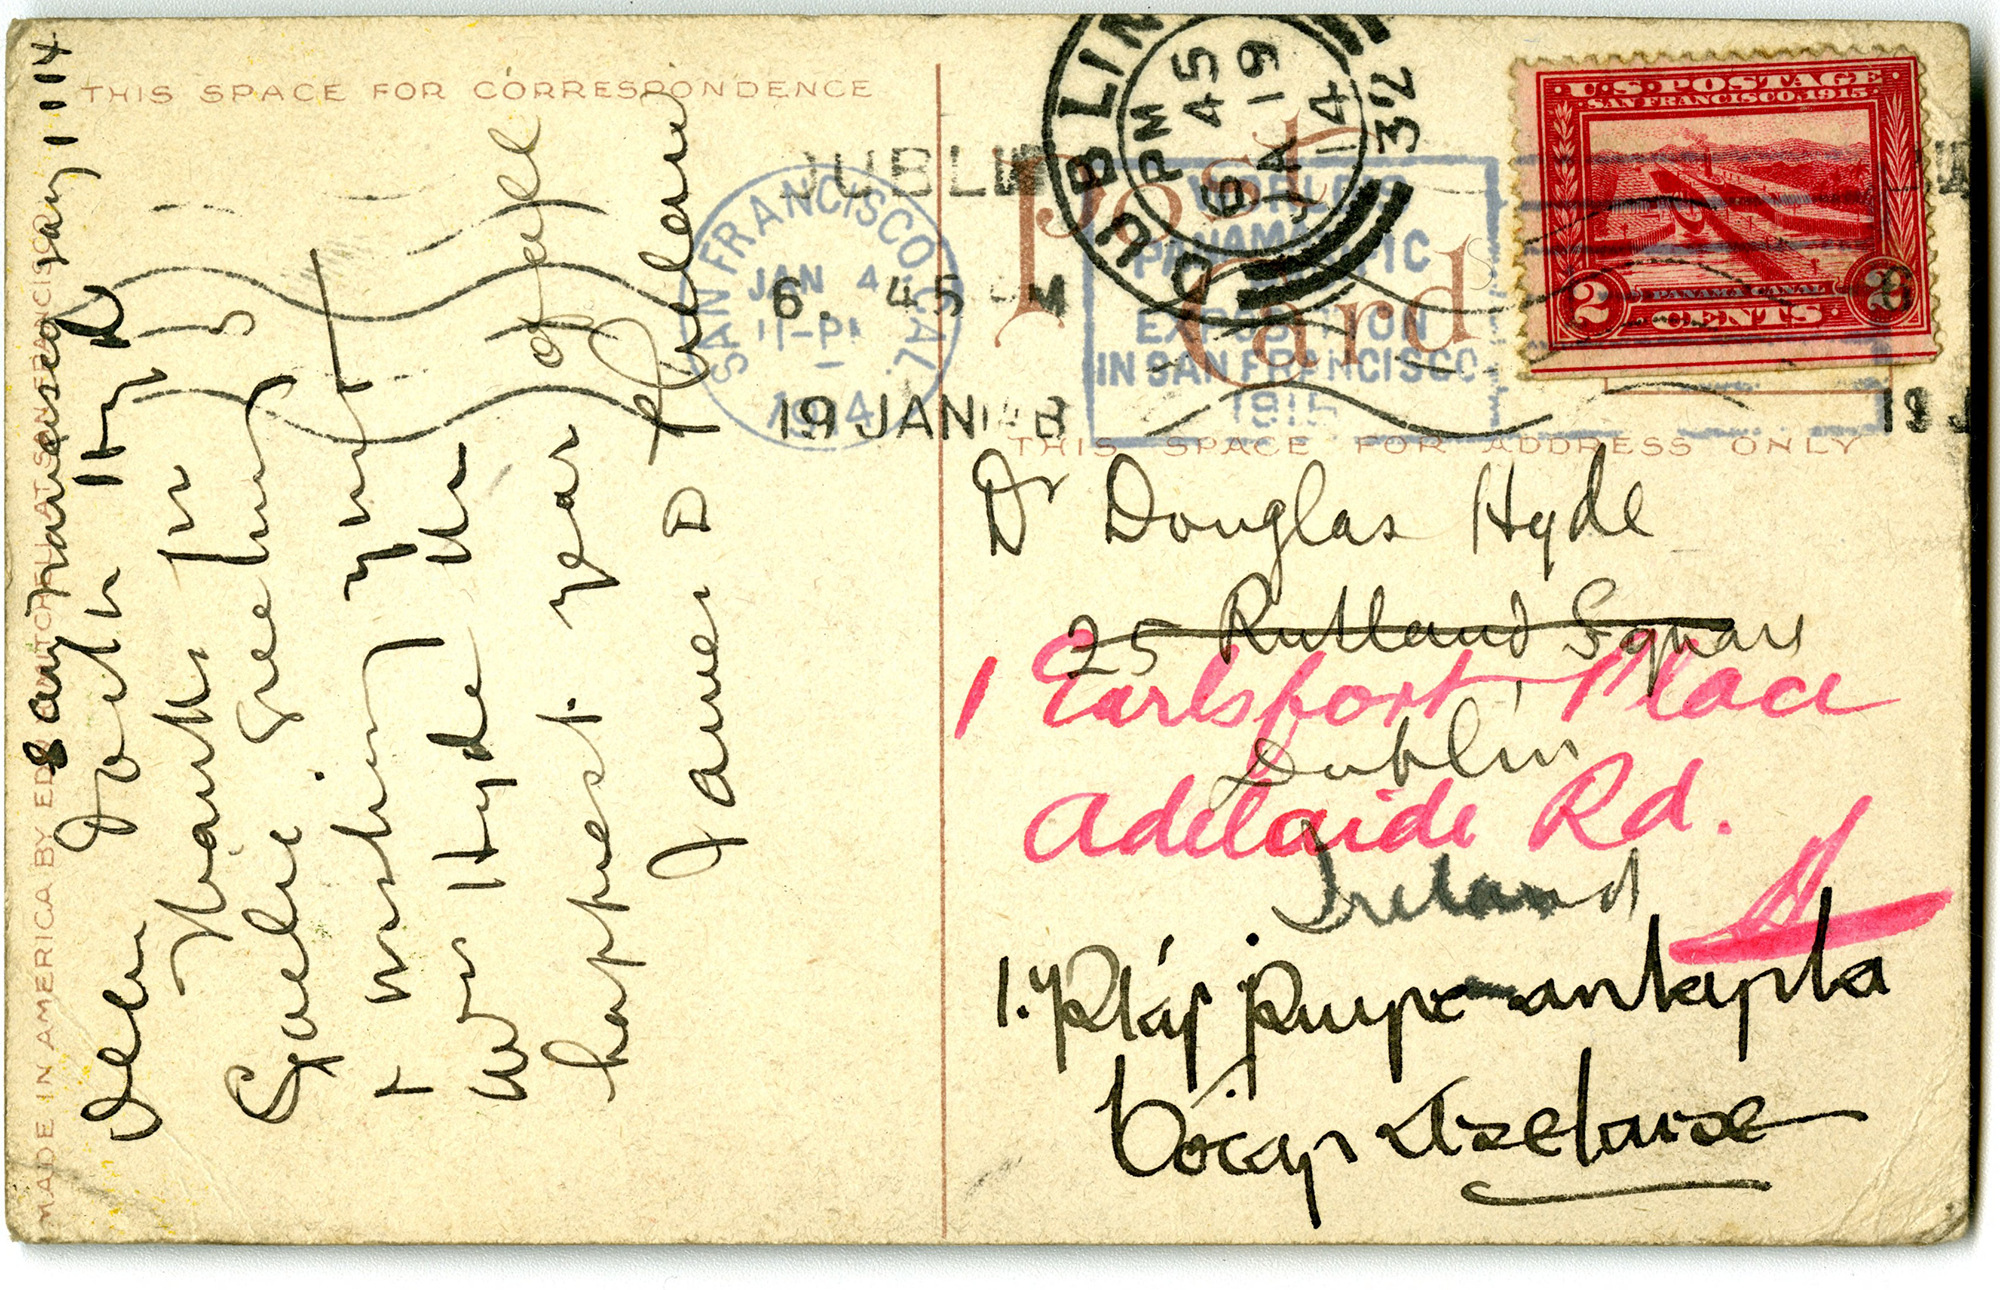 THIS SPACE FOR CORRESPONDENCE
MADE IN AMERICA BY
San Francisco Jany 1 '14
Dear Doctr Hyde
Thanks for
Gaelic Greetings
& wishing you &
Mrs Hyde the
happiest year of all
James D Phelan
SAN FRANCISCO, CAL.
JAN 4
11-PM
1914
WORLD'S
PANAMA-PACIFIC
EXPOSITION
IN SAN FRANCISCO
1915
DUBLIN
6. 45 PM
19 JAN
DUBLIN
6 45 PM
JA 19
14
32
U.S. POSTAGE
SAN FRANCISCO, 1915
PANAMA CANAL
2 CENTS 2
Post
Card
THIS SPACE FOR ADDRESS ONLY
Dr Douglas Hyde
25 Rutland Square
1 Earlsfort Place
Dublin
Adelaide Rd.
Ireland